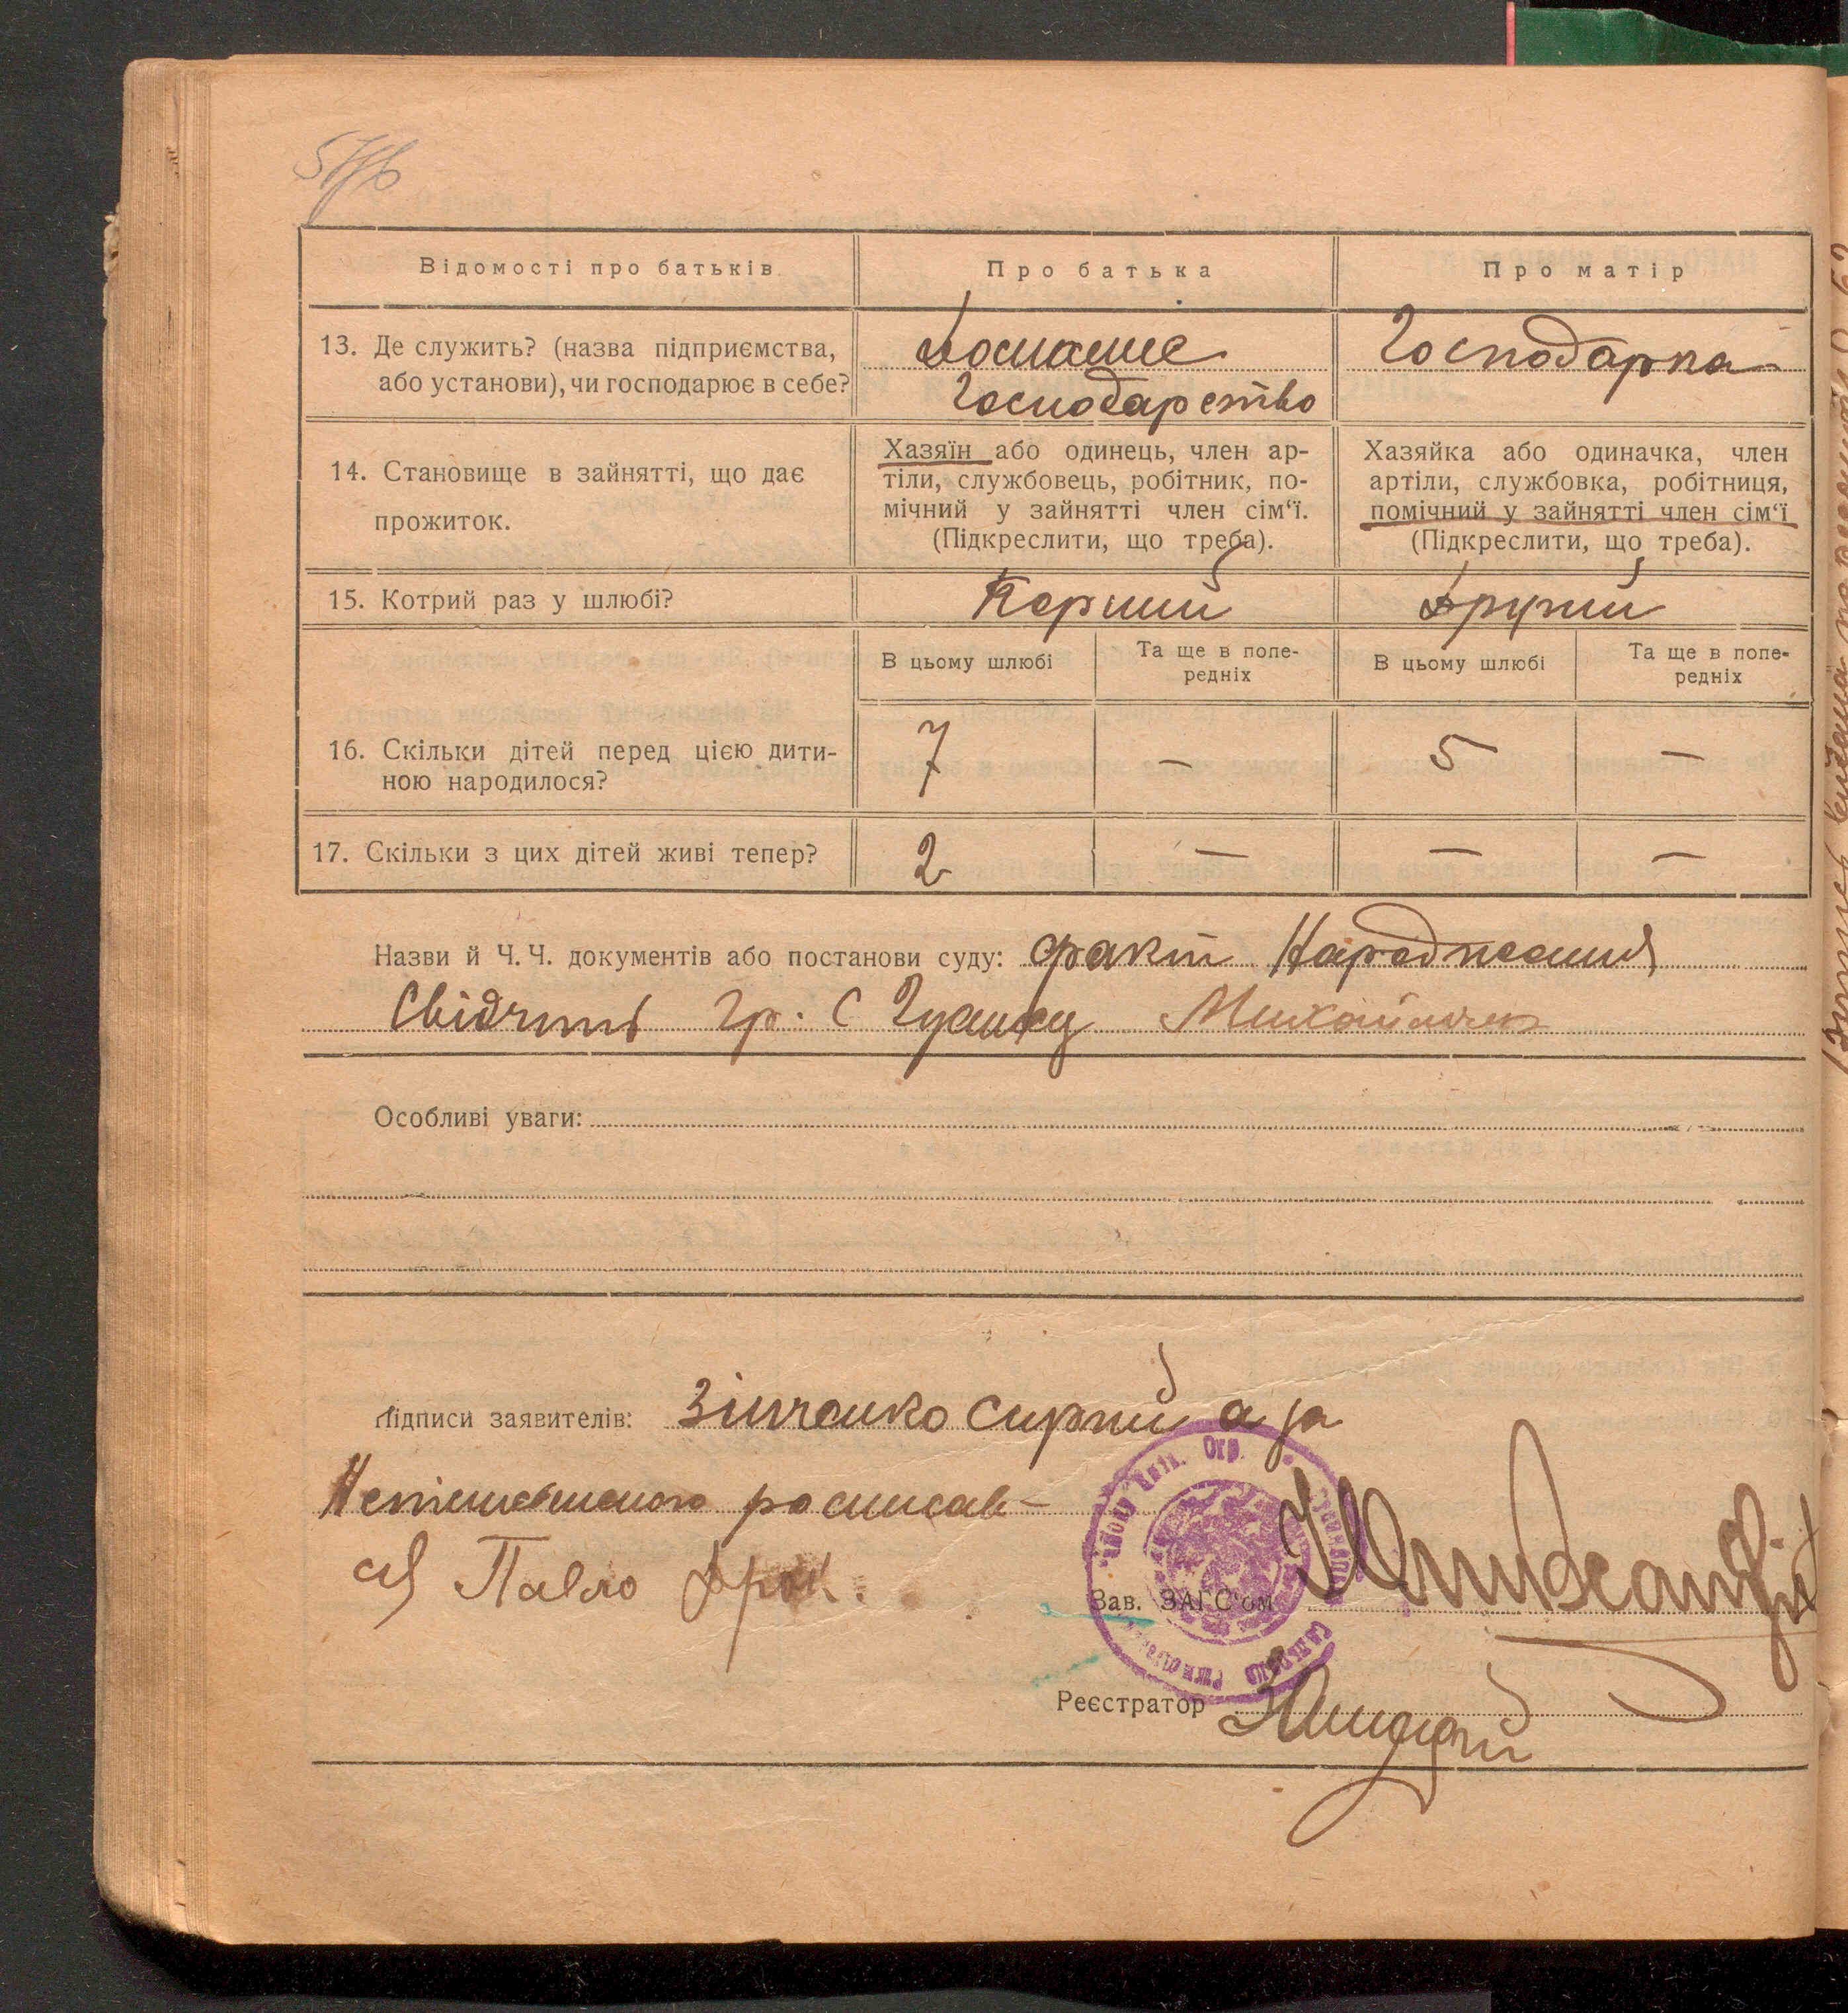 Відомості про батьків
Про батька
Про матір
13. Де служить? (назва підприємства,
або установи), чи господарює в себе?
Домашнє
Господарство
Господарка
14. Становище в зайнятті, що дає
прожиток.
Хазяїн або одинець, член ар-
тіли, службовець, робітник, по-
мічний у зайнятті член сім‘ї.
(Підкреслити, що треба).
Хазяйка або одиначка, член
артіли, службовка, робітниця,
помічний у зайнятті член сім‘ї
(Підкреслити, що треба).
15. Котрий раз у шлюбі?
Перший
Другий
В цьому шлюбі
Та ще в попе-
редніх
В цьому шлюбі
Та ще в попе-
редніх
16. Скільки дітей перед цією дити-
ною народилося?
7 — 5 —
17. Скільки з цих дітей живі тепер?
2 — — —
Назви й Ч. Ч. документів або постанови суду: факт Народження
Свідчить гр. С
Особливі уваги:
Підписи заявителів: Зінченко Сиргий а за
росписав-
ся Павло Дрок.
Зав. ЗАГС'ом
Реєстратор